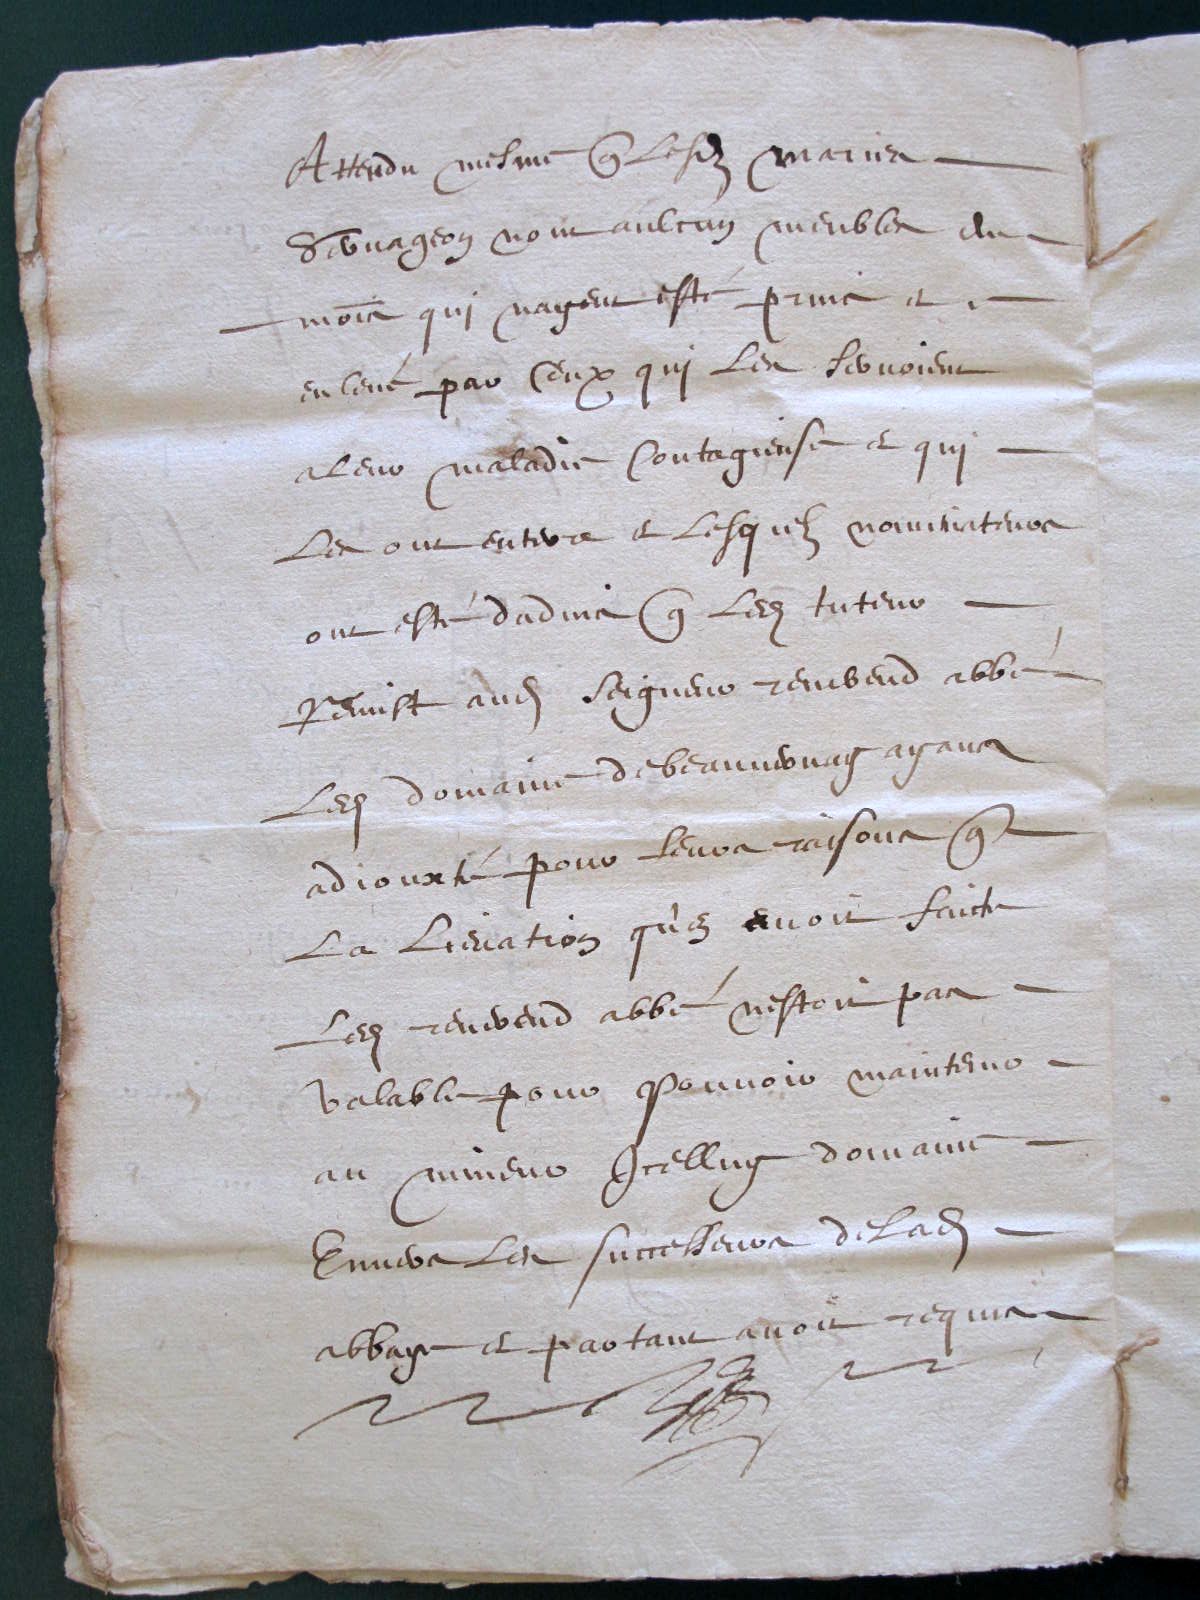 Attendu mesme q lesd mariez
Servageon nont aulcun meubles du
mois qui nayent esté prins et
enlevé par ceux qui les servoient
a leur maladie contagieuse et qui
les ont enterre et lesquelz nominateurs
ont esté dadvis q led tuteur
Remist aud seigneur reverend abbé
led domaine de ayans
adiouxté pour leurs raisons q
La avoit faicte
led reverend abbé nestoit pas
valable pour pouvoir maintenir
au mineur Jcelluy domaine
Envers les successeurs de lad
abbaye et partant avoit requis